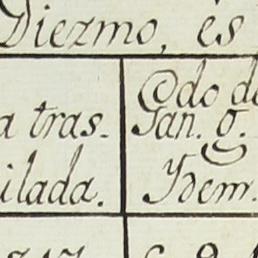 Diezmo, es
a tras.
ilada.
@do de
San. g.
Ydem.